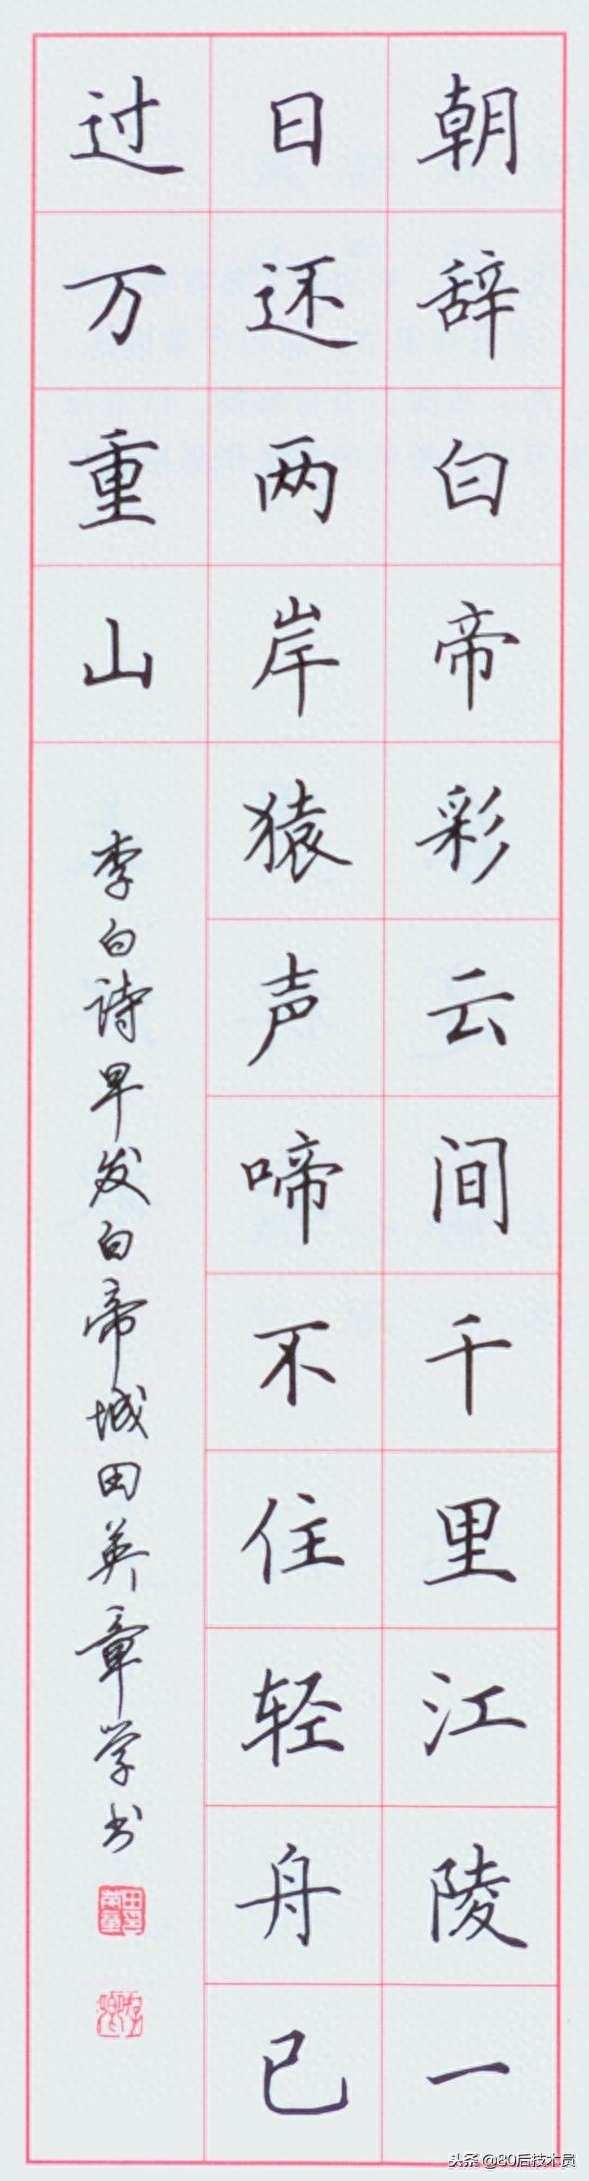 朝辞白帝彩云间千里江陵一
日还两岸猿声啼不住轻舟已
过万重山
李白诗早发白帝城田英章学书
头条 @80后技术员